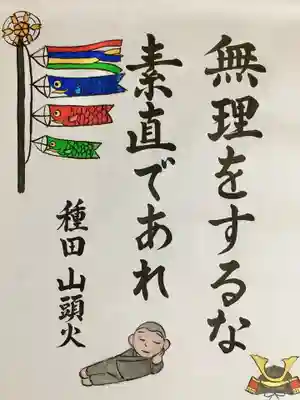 無理をするな
素直であれ
種田山頭火